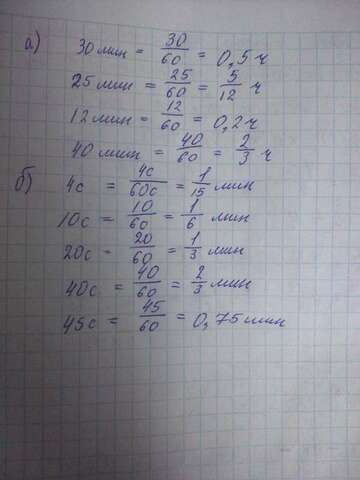 а) 30 мин = 30/60 = 0,5 ч
25 мин = 25/60 = 5/12 ч
12 мин = 12/60 = 0,2 ч
40 мин = 40/60 = 2/3 ч
б) 4с = 4с/60с = 1/15 мин
10с = 10/60 = 1/6 мин
20с = 20/60 = 1/3 мин
40с = 40/60 = 2/3 мин
45с = 45/60 = 0,75 мин